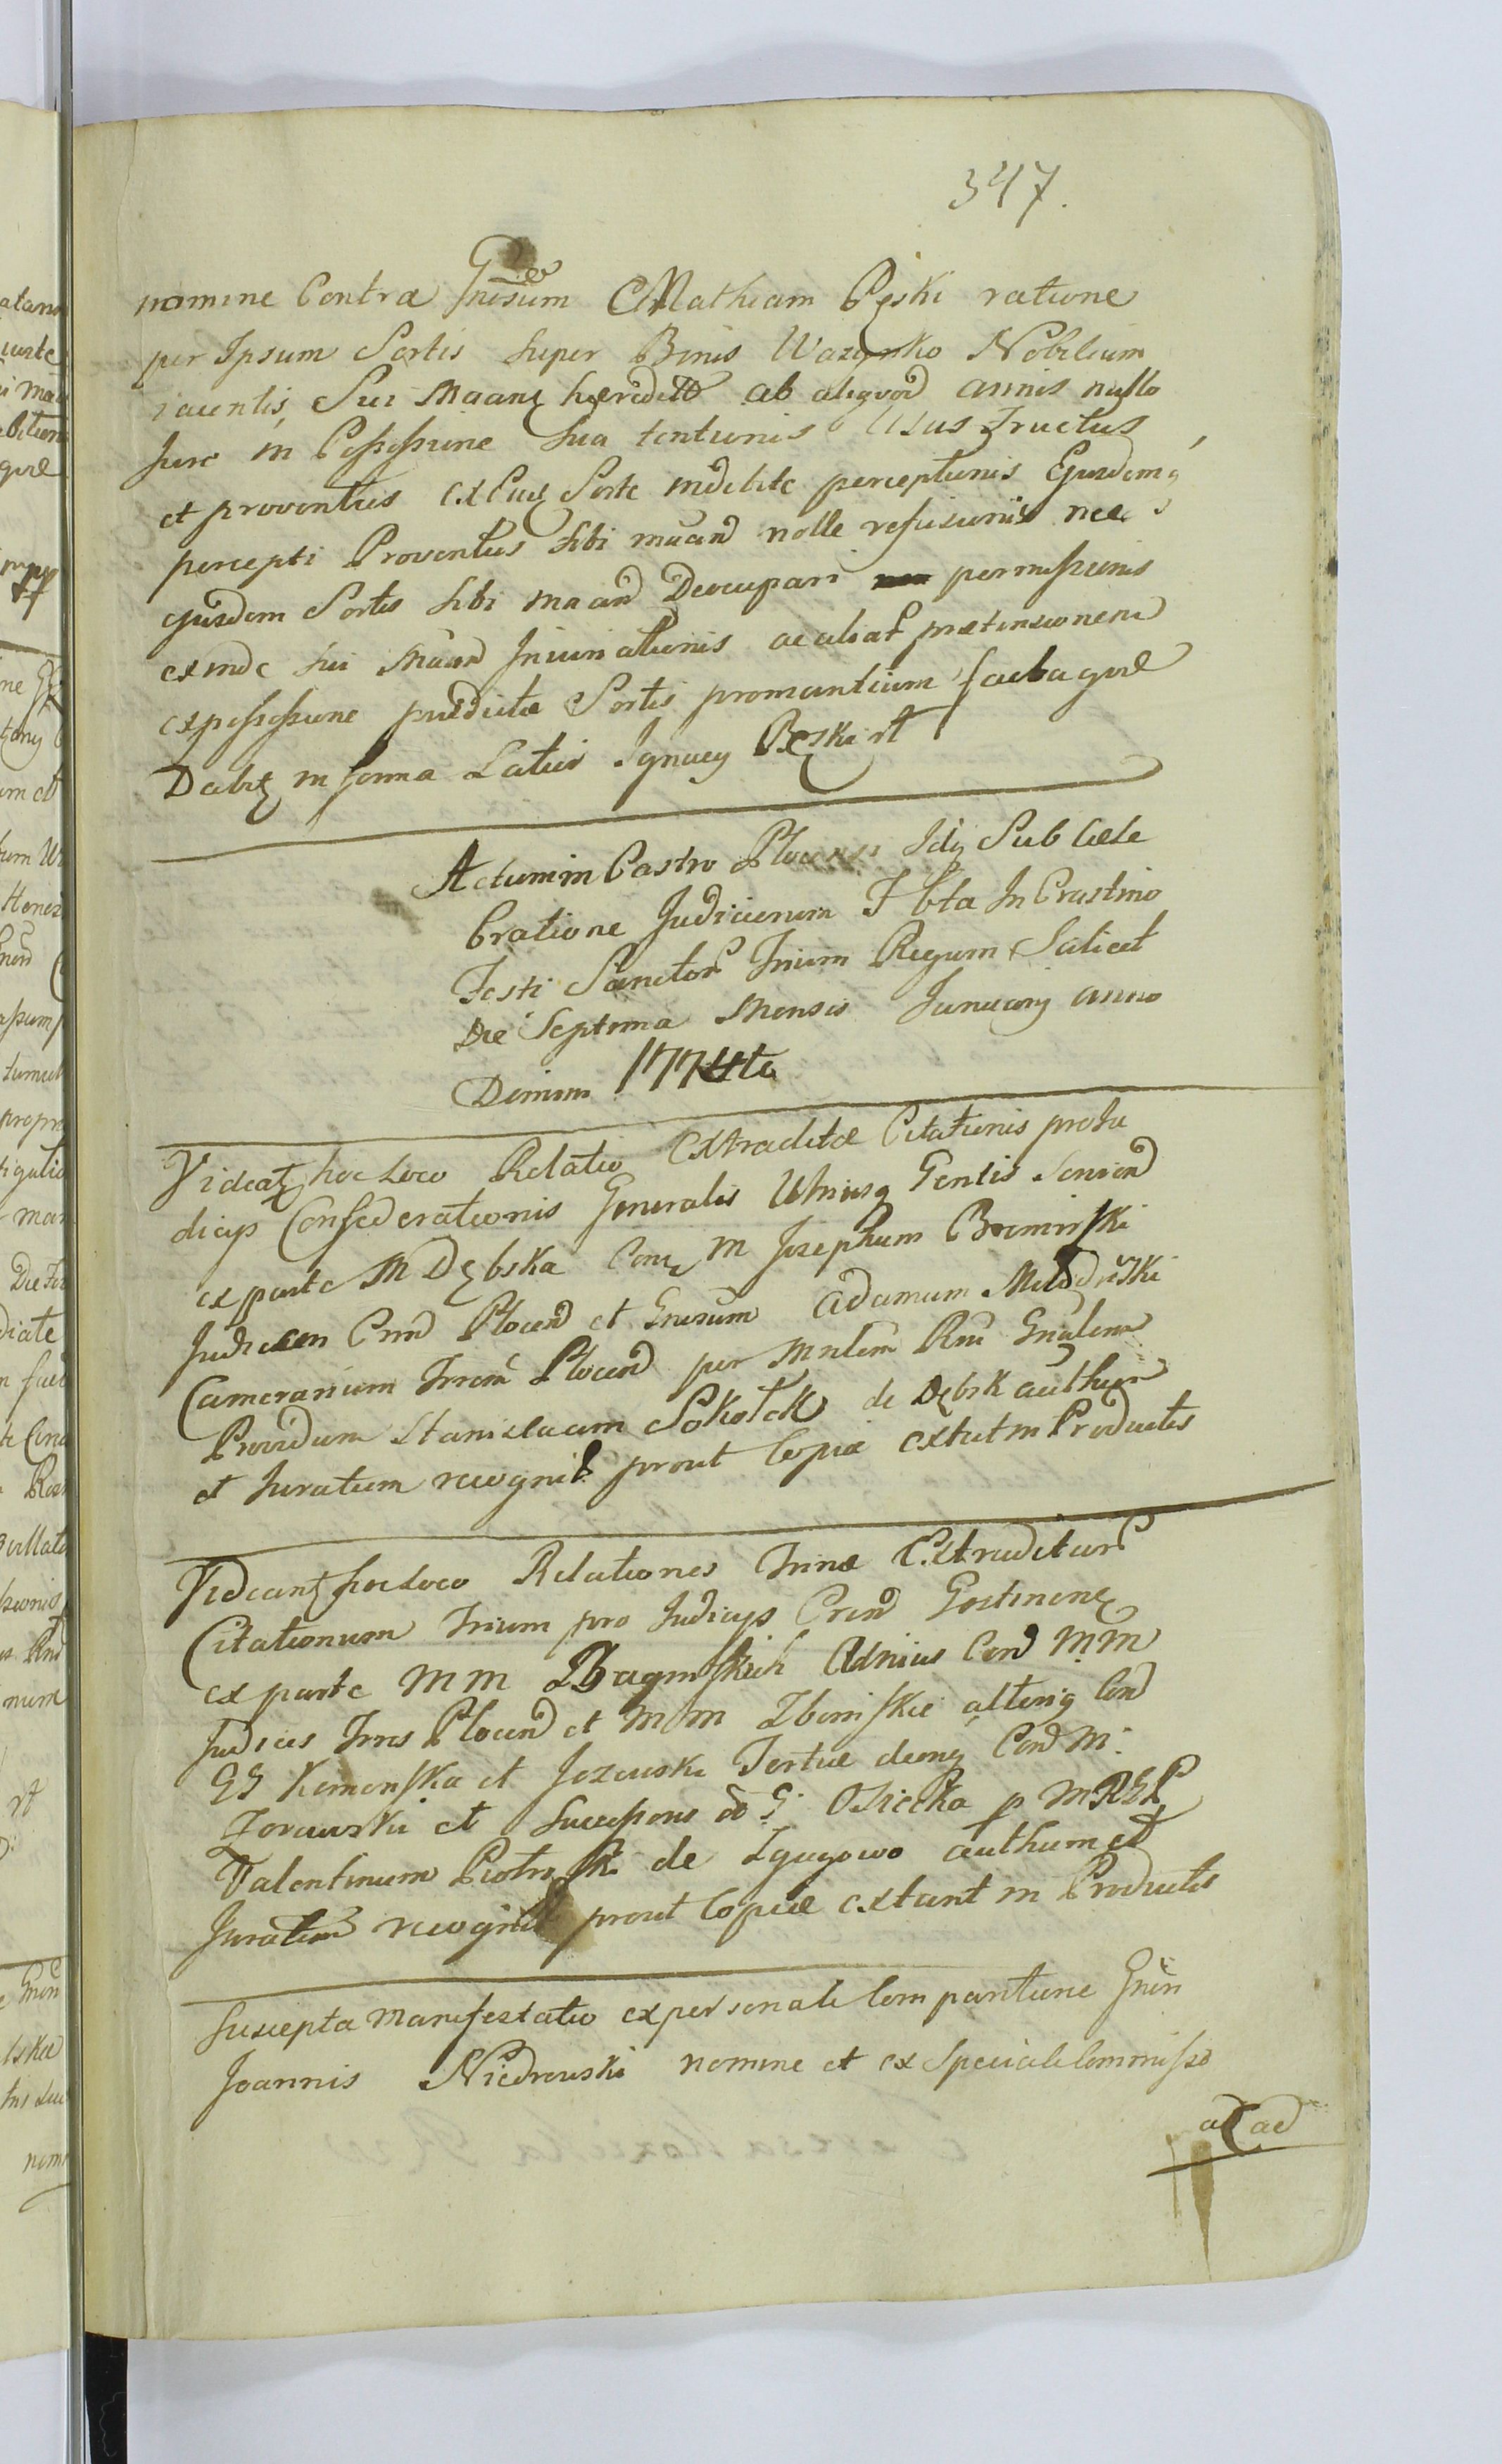 347.
nomine Contra Gnrosum Mathiam Pęski ratione
per Ipsum Sortis super Bonis Wazynko Nobilium
iacentis, Sui Maanꝫ hæredittæ ab aliqvod annis nullo
Jure in Possessione sua tentionis Usus Fructus,
et proventus ex Eius Sorte indebite perceptionis Ejusdemq
percepti Proventus sibi maand nolle refusionis nec
ejusdem Sortis sibi maand Deocupari permissionis
exinde sui Maand Iniuriationis ac aliar prætensionem
expossessione prædictæ Sortis promantium facta qvæ
Dabꝫ in forma Latius Ignacy Pęski rt
Actum in Castro Plocensi Idq Sub Cele
bratione Judiciorum F bta In Crastino
Festi Sanctor Trium Regum Scilicet
Die Septima Mensis January anno
Domini 1774to
Videatꝫ hoc Loco Relatio Extraditæ Citationis pro Ju
dicys Confœderationis Generalis Utriusq Gentis Serviend
ex parte M Dębska Conꝫ M Josephum Bromirski
Judicem Crnd Plocend et Gnrosum Adamum Młodziński
Camerarium Trrem Plocend per Mnlem Rni Gnalem
Providum Stanislaum Sokołek de Dębsk authen
et Juratum recognit prout Copia extat in Productis
Videantꝫ hoc Loco Relationes Trinæ Extraditar
Citationum Trium pro Judicys Crend Gostinenꝫ
ex parte MM Bagniskich Adnius Cond MM
Judices Trres Plocend et MM Zboniskie alterius Cond
GG Kemenska et Jezewski Tertiæ deonꝫ Cond M.
Zorawski et Successores G. Osiecka p MRGL
Valentinum Piotroski de Zgagowo authum et
Juratum recognit prout Copiæ extant in Productis
Suscepta Manifestatio ex personali Comparitione Gnrn
Joannis Niedrowski nomine et ex Speciali Commisso
ac ad